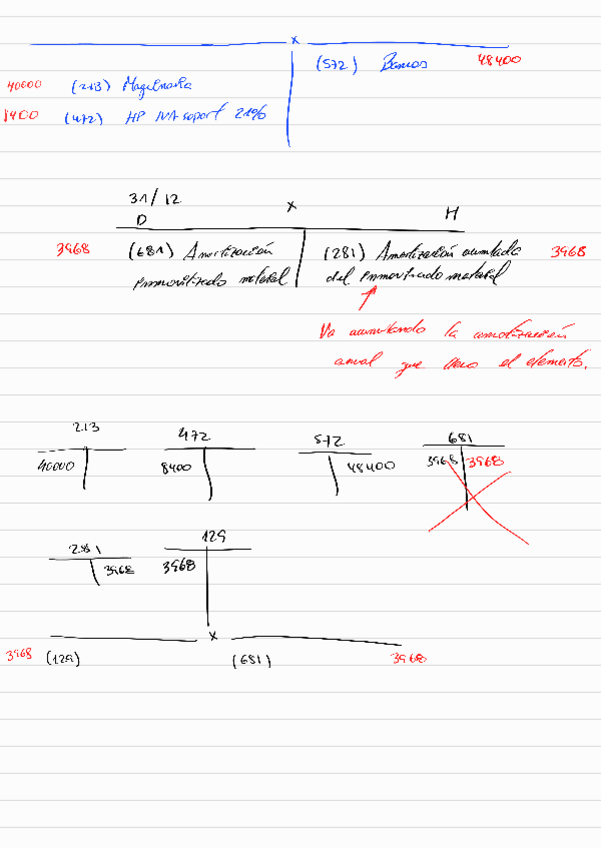 x
(572) Bancos 48400
40000 (213) Maquinaria
8400 (472) HP IVA soport 21%
31/12 x
D H
3968 (681) Amortización (281) Amortización acumulada 3968
inmovilizado material del inmovilizado material
Va acumulando la amortización
anual que lleva el elemento.
213 472 572 681
40000 8400 48400 3968 3968
281 129
3968 3968
x
3968 (129) (681) 3968